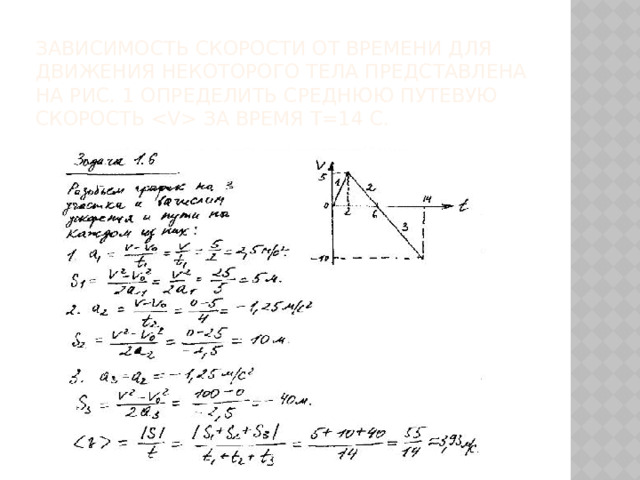 ЗАВИСИМОСТЬ СКОРОСТИ ОТ ВРЕМЕНИ ДЛЯ
ДВИЖЕНИЯ НЕКОТОРОГО ТЕЛА ПРЕДСТАВЛЕНА
НА РИС. 1 ОПРЕДЕЛИТЬ СРЕДНЮЮ ПУТЕВУЮ
СКОРОСТЬ <V> ЗА ВРЕМЯ T=14 С.
Задача 1.6
Разобьем график на 3
участка и вычислим
ускорения и пути на
каждом из них:
1. a₁ = (v-v₀)/t₁ = v/t₁ = 5/2 = 2,5 м/с².
S₁ = (v²-v₀²)/2a₁ = v²/2a₁ = 25/5 = 5 м.
2. a₂ = (v-v₀)/t₂ = (0-5)/4 = -1,25 м/с²
S₂ = (v²-v₀²)/2a₂ = (0-25)/-2,5 = 10 м.
3. a₃=a₂ = -1,25 м/с²
S₃ = (v²-v₀²)/2a₃ = (100-0)/-2,5 = -40 м.
<v> = |S|/t = |S₁+S₂+S₃|/(t₁+t₂+t₃) = (5+10+40)/14 = 55/14 = 3,93 м/с.
V
5
1
2
0
2
6
14
t
3
-10